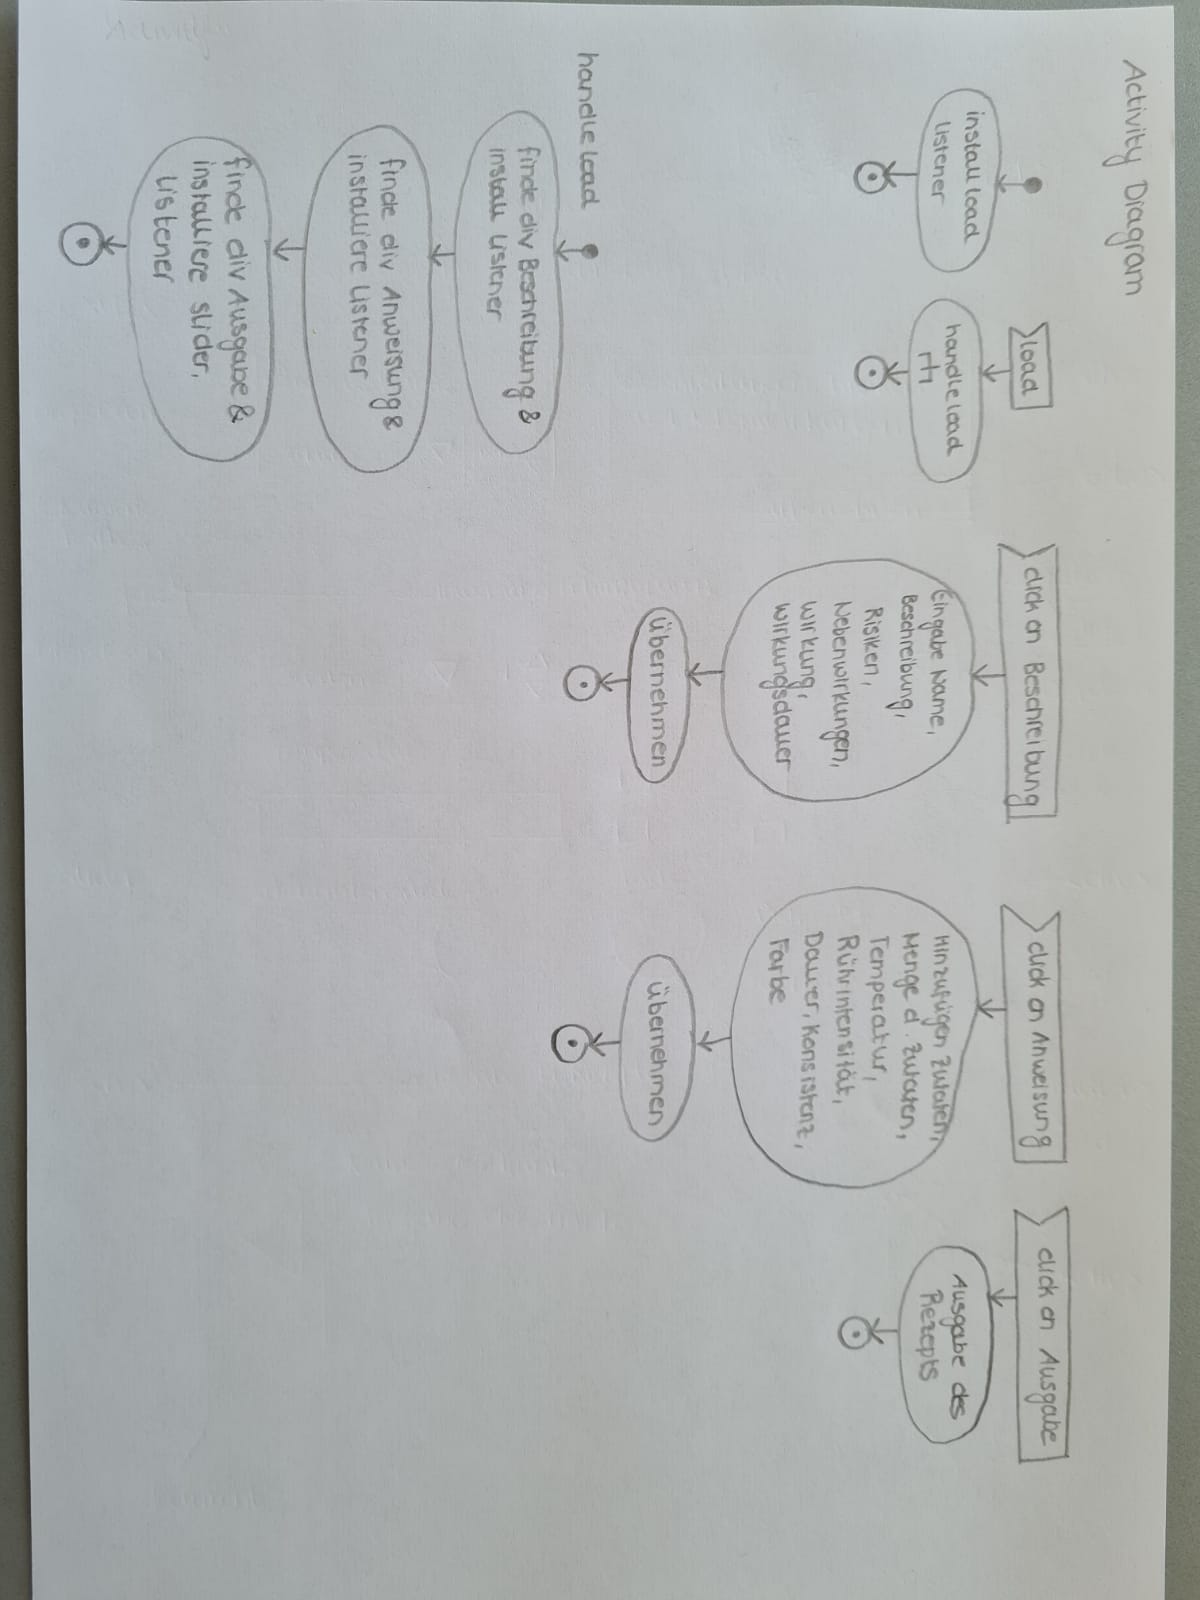 Activity Diagram
install load
Listener
load
handle load
click on Beschreibung
Eingabe Name,
Beschreibung,
Risiken,
Nebenwirkungen,
Wirkung,
Wirkungsdauer
übernehmen
click on Anweisung
Hinzufügen Zutaten,
Menge d. Zutaten,
Temperatur,
Rührintensität,
Dauer, Konsistenz,
Farbe
übernehmen
click on Ausgabe
Ausgabe des
Rezepts
handle load
finde div Beschreibung &
install Listener
finde div Anweisung &
installiere Listener
finde div Ausgabe &
installiere slider,
Listener